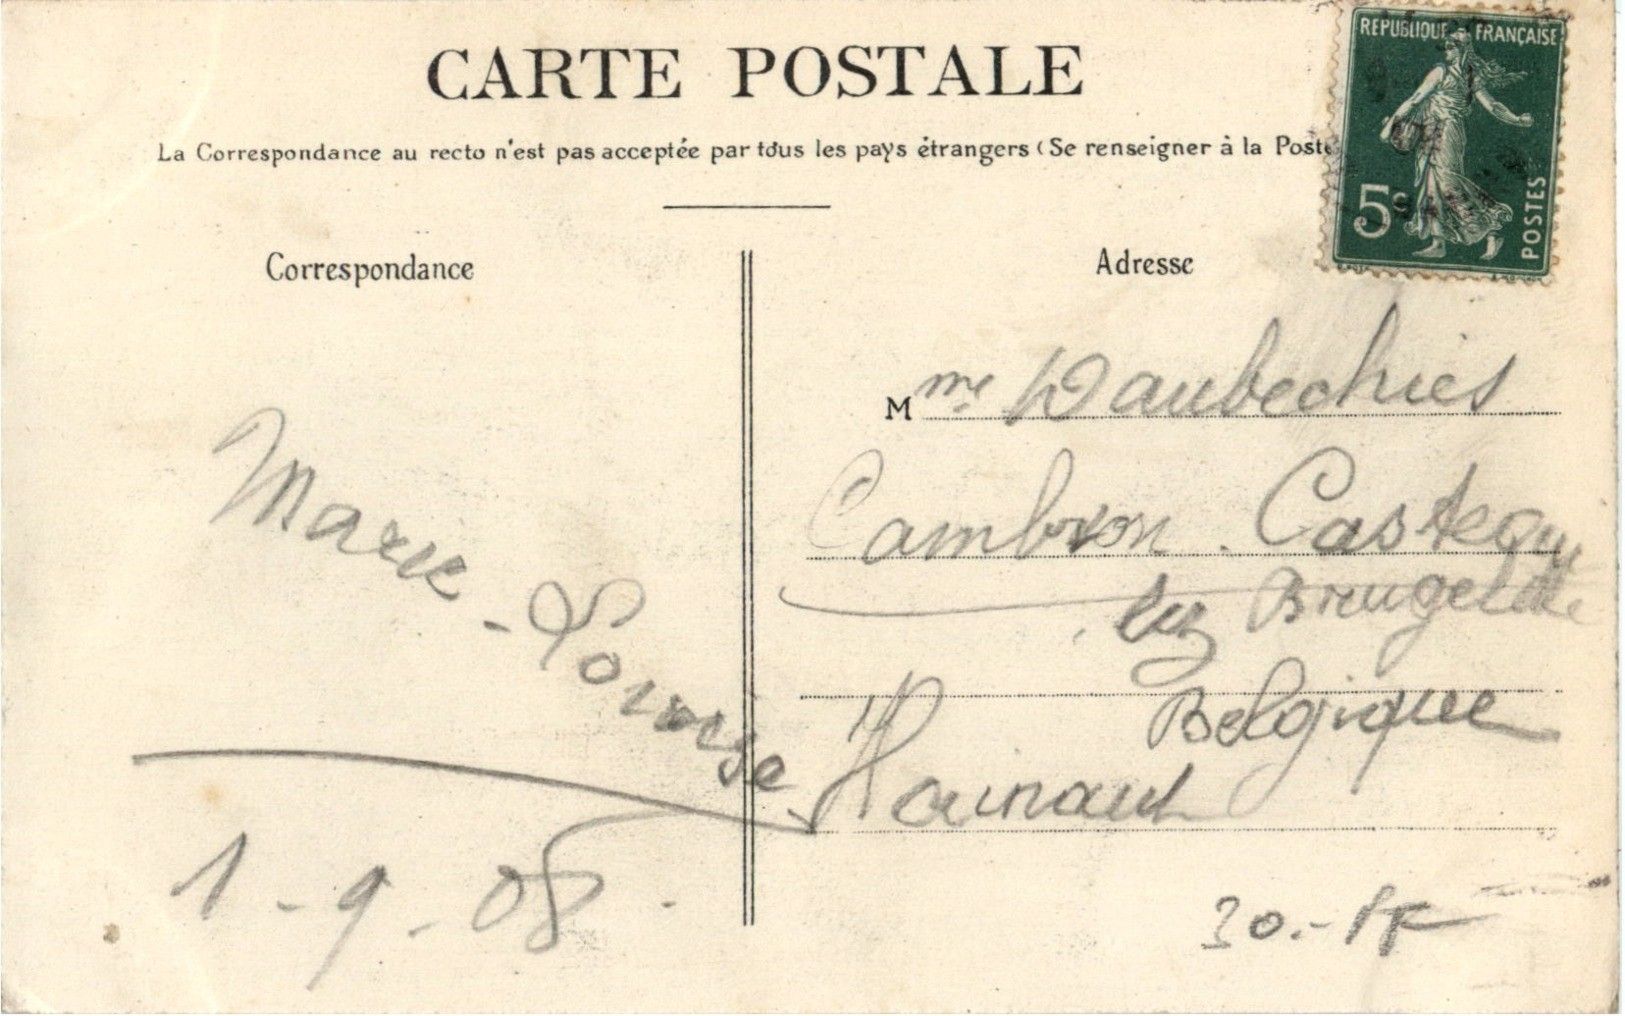 CARTE POSTALE
La Correspondance au recto n'est pas acceptée par tous les pays étrangers (Se renseigner à la Poste
REPUBLIQUE FRANÇAISE
5c
POSTES
Correspondance
Marie-Louise
1-9-08.
Adresse
Mme Daubechies
Cambron-Casteau
lez Brugelette
Belgique
Hainaut
30.-